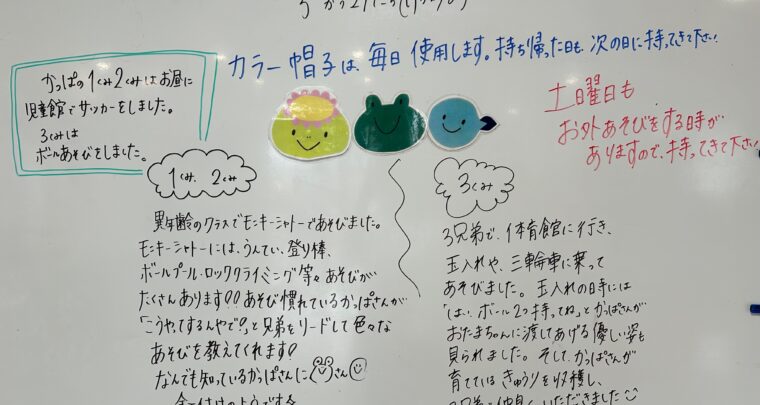 カラー帽子は、毎日使用します。持ち帰った日も、次の日に持ってきて下さい
かっぱの1くみ2くみはお昼に
児童館でサッカーをしました。
3くみは
ボールあそびをしました。
土曜日も
お外あそびをする時が
ありますので、持ってきて下さい
1くみ、2くみ
異年齢のクラスでモンキーシャトーであそびました。
モンキーシャトーには、うんてい、登り棒、
ボールプール・ロッククライミング等々あそびが
たくさんあります!!あそび慣れているかっぱさんが
「こうやってするんやで!」と兄弟をリードして色々な
あそびを教えてくれます!
なんでも知っているかっぱさんに さん
3くみ
3兄弟で、体育館に行き、
玉入れや、三輪車に乗って
あそびました。玉入れの時には
「はい、ボール2つ持ってね」とかっぱさんが
おたまちゃんに渡してあげる優しい姿も
見られました。そして、かっぱさんが
育てているきゅうりを収穫し、
3兄弟で仲良くいただきました